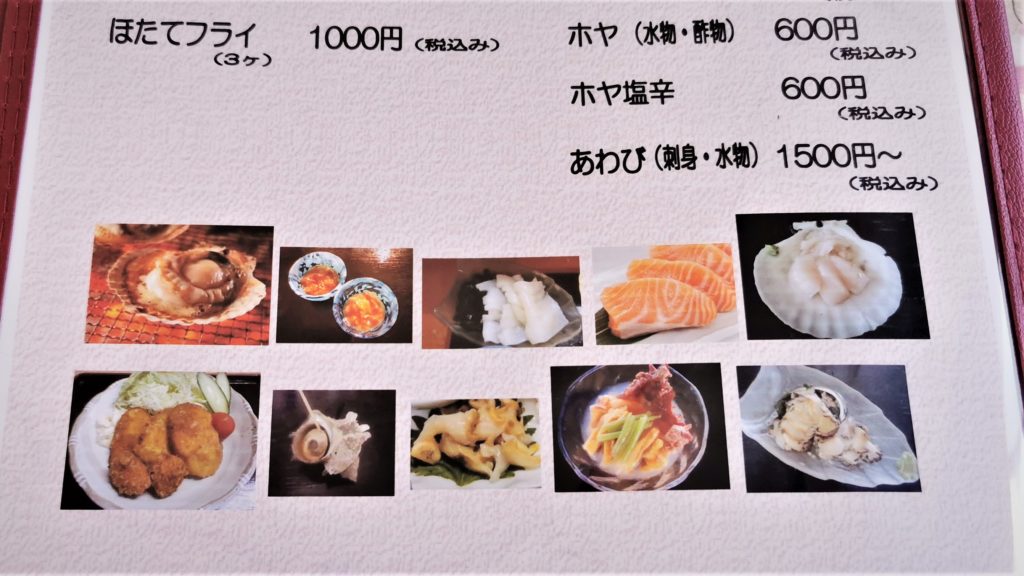 ほたてフライ 1000円(税込み)
(3ヶ)
ホヤ(水物・酢物) 600円
(税込み)
ホヤ塩辛 600円
(税込み)
あわび(刺身・水物) 1500円~
(税込み)